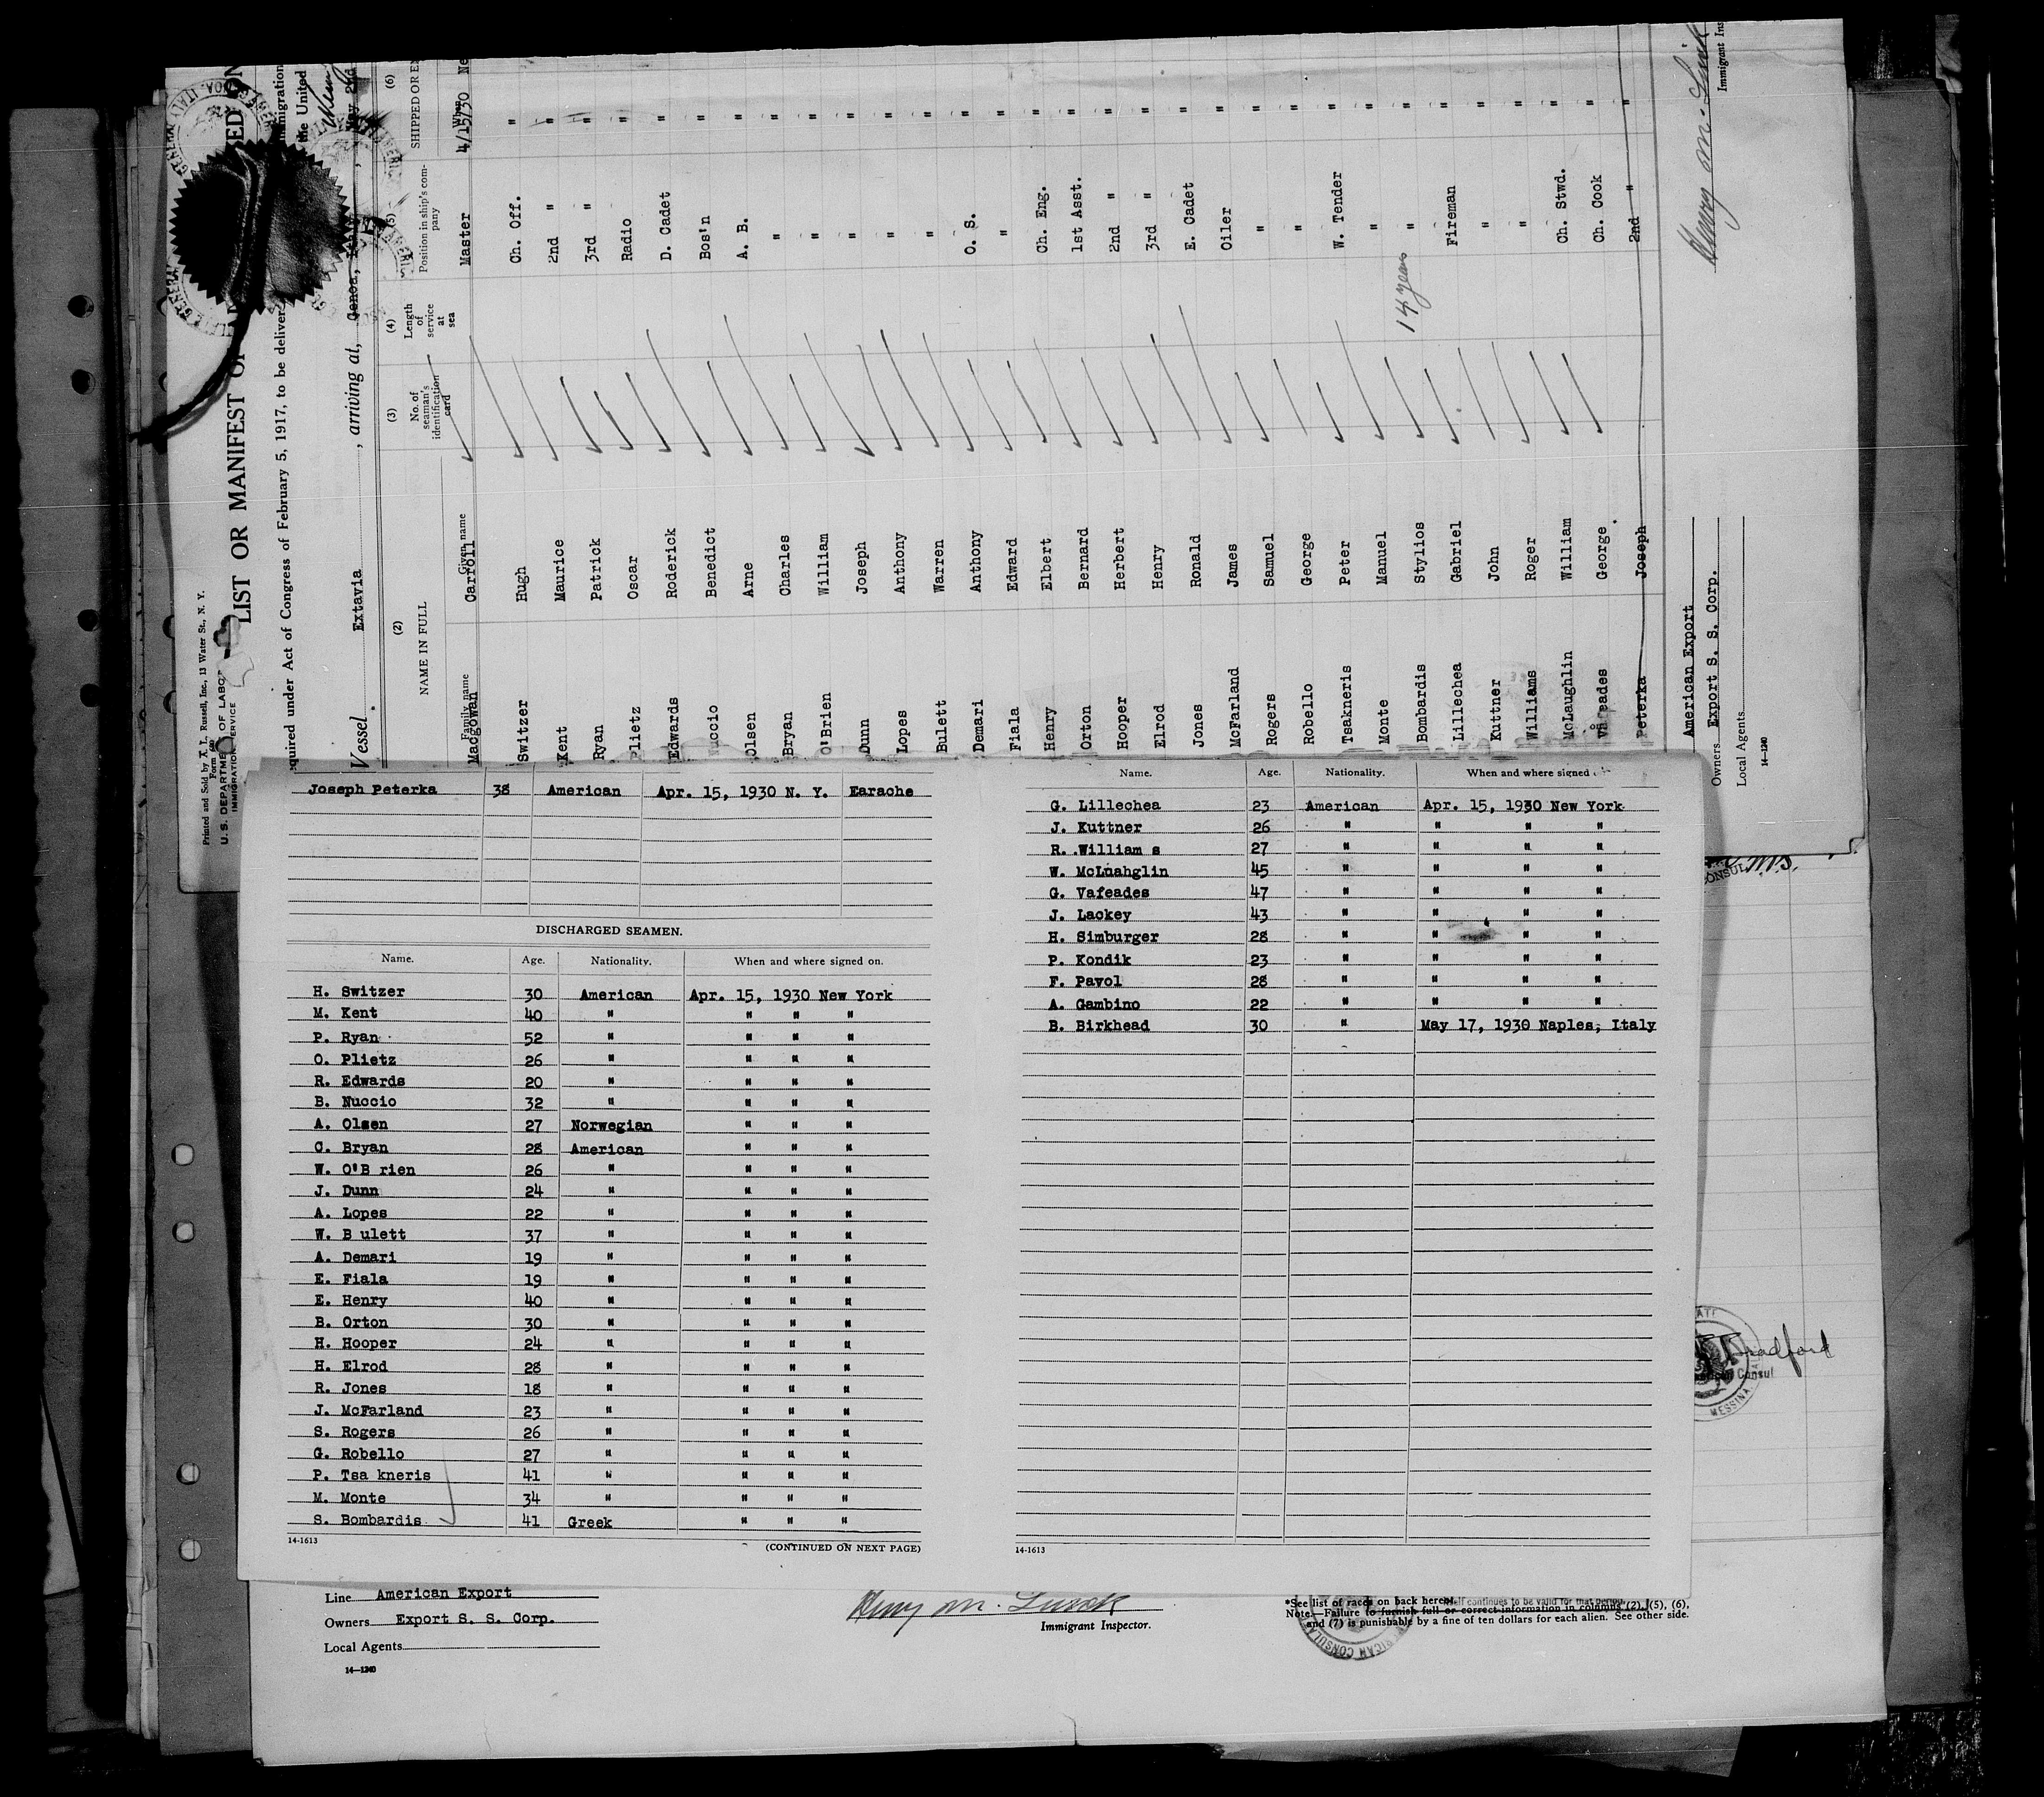 Printed and Sold by A. L. Russell, Inc., 13 Water St., N. Y.
Form 680
U. S. DEPARTMENT OF LABOR
IMMIGRATION SERVICE
LIST OR MANIFEST OF
equired under Act of Congress of February 5, 1917, to be deliver
mmigration
he United
Vessel Extavia, arriving at, Genoa, Italy, May 2nd
(2) (3) (4) (5) (6)
NAME IN FULL No. of seaman's identification card Length of service at sea Position in ship's company SHIPPED OR EN
Family name Given name When
Macgowan Carroll Master 4/15/30 Ne
Switzer Hugh Ch. Off. "
Kent Maurice 2nd " "
Ryan Patrick 3rd " "
Plietz Oscar Radio "
Edwards Roderick D. Cadet "
uccio Benedict Bos'n "
Olsen Arne A. B. "
Bryan Charles " "
O'Brien William " "
Dunn Joseph " "
Lopes Anthony " "
Bulett Warren " "
Demari Anthony O. S. "
Fiala Edward " "
Henry Elbert Ch. Eng. "
Orton Bernard 1st Asst. "
Hooper Herbert 2nd " "
Elrod Henry 3rd " "
Jones Ronald E. Cadet "
McFarland James Oiler "
Rogers Samuel " "
Robello George " "
Tsakneris Peter W. Tender "
Monte Manuel " "
Bombardis Stylios 14 years " "
Lillechea Gabriel Fireman "
Kuttner John " "
Williams Roger " "
McLaughlin William Ch. Stwd. "
Vafeades George Ch. Cook "
Peterka Joseph 2nd " "
American Export
Owners Export S. S. Corp.
Local Agents
14—1240
Immigrant Ins
Joseph Peterka 38 American Apr. 15, 1930 N. Y. Earache
DISCHARGED SEAMEN.
Name. Age. Nationality. When and where signed on.
H. Switzer 30 American Apr. 15, 1930 New York
M. Kent 40 " " " "
P. Ryan 52 " " " "
O. Plietz 26 " " " "
R. Edwards 20 " " " "
B. Nuccio 32 " " " "
A. Olsen 27 Norwegian " " "
C. Bryan 28 American " " "
W. O'B rien 26 " " " "
J. Dunn 24 " " " "
A. Lopes 22 " " " "
W. B ulett 37 " " " "
A. Demari 19 " " " "
E. Fiala 19 " " " "
E. Henry 40 " " " "
B. Orton 30 " " " "
H. Hooper 24 " " " "
H. Elrod 28 " " " "
R. Jones 18 " " " "
J. McFarland 23 " " " "
S. Rogers 26 " " " "
G. Robello 27 " " " "
P. Tsa kneris 41 " " " "
M. Monte 34 " " " "
S. Bombardis 41 Greek " " "
14-1613
(CONTINUED ON NEXT PAGE)
Name. Age. Nationality. When and where signed
G. Lillechea 23 American Apr. 15, 1930 New York
J. Kuttner 26 " " " "
R. William s 27 " " " "
W. McLuahglin 45 " " " "
G. Vafeades 47 " " " "
J. Lackey 43 " " " "
H. Simburger 28 " " " "
P. Kondik 23 " " " "
F. Pavol 28 " " " "
A. Gambino 22 " " " "
B. Birkhead 30 " May 17, 1930 Naples, Italy
14-1613
radford
Consul
MESSINA
Line American Export
Owners Export S. S. Corp.
Local Agents
14—1240
Immigrant Inspector.
*See list of races on back hereof.
Note.—Failure to furnish full or correct information in columns (2), (5), (6),
and (7) is punishable by a fine of ten dollars for each alien. See other side.